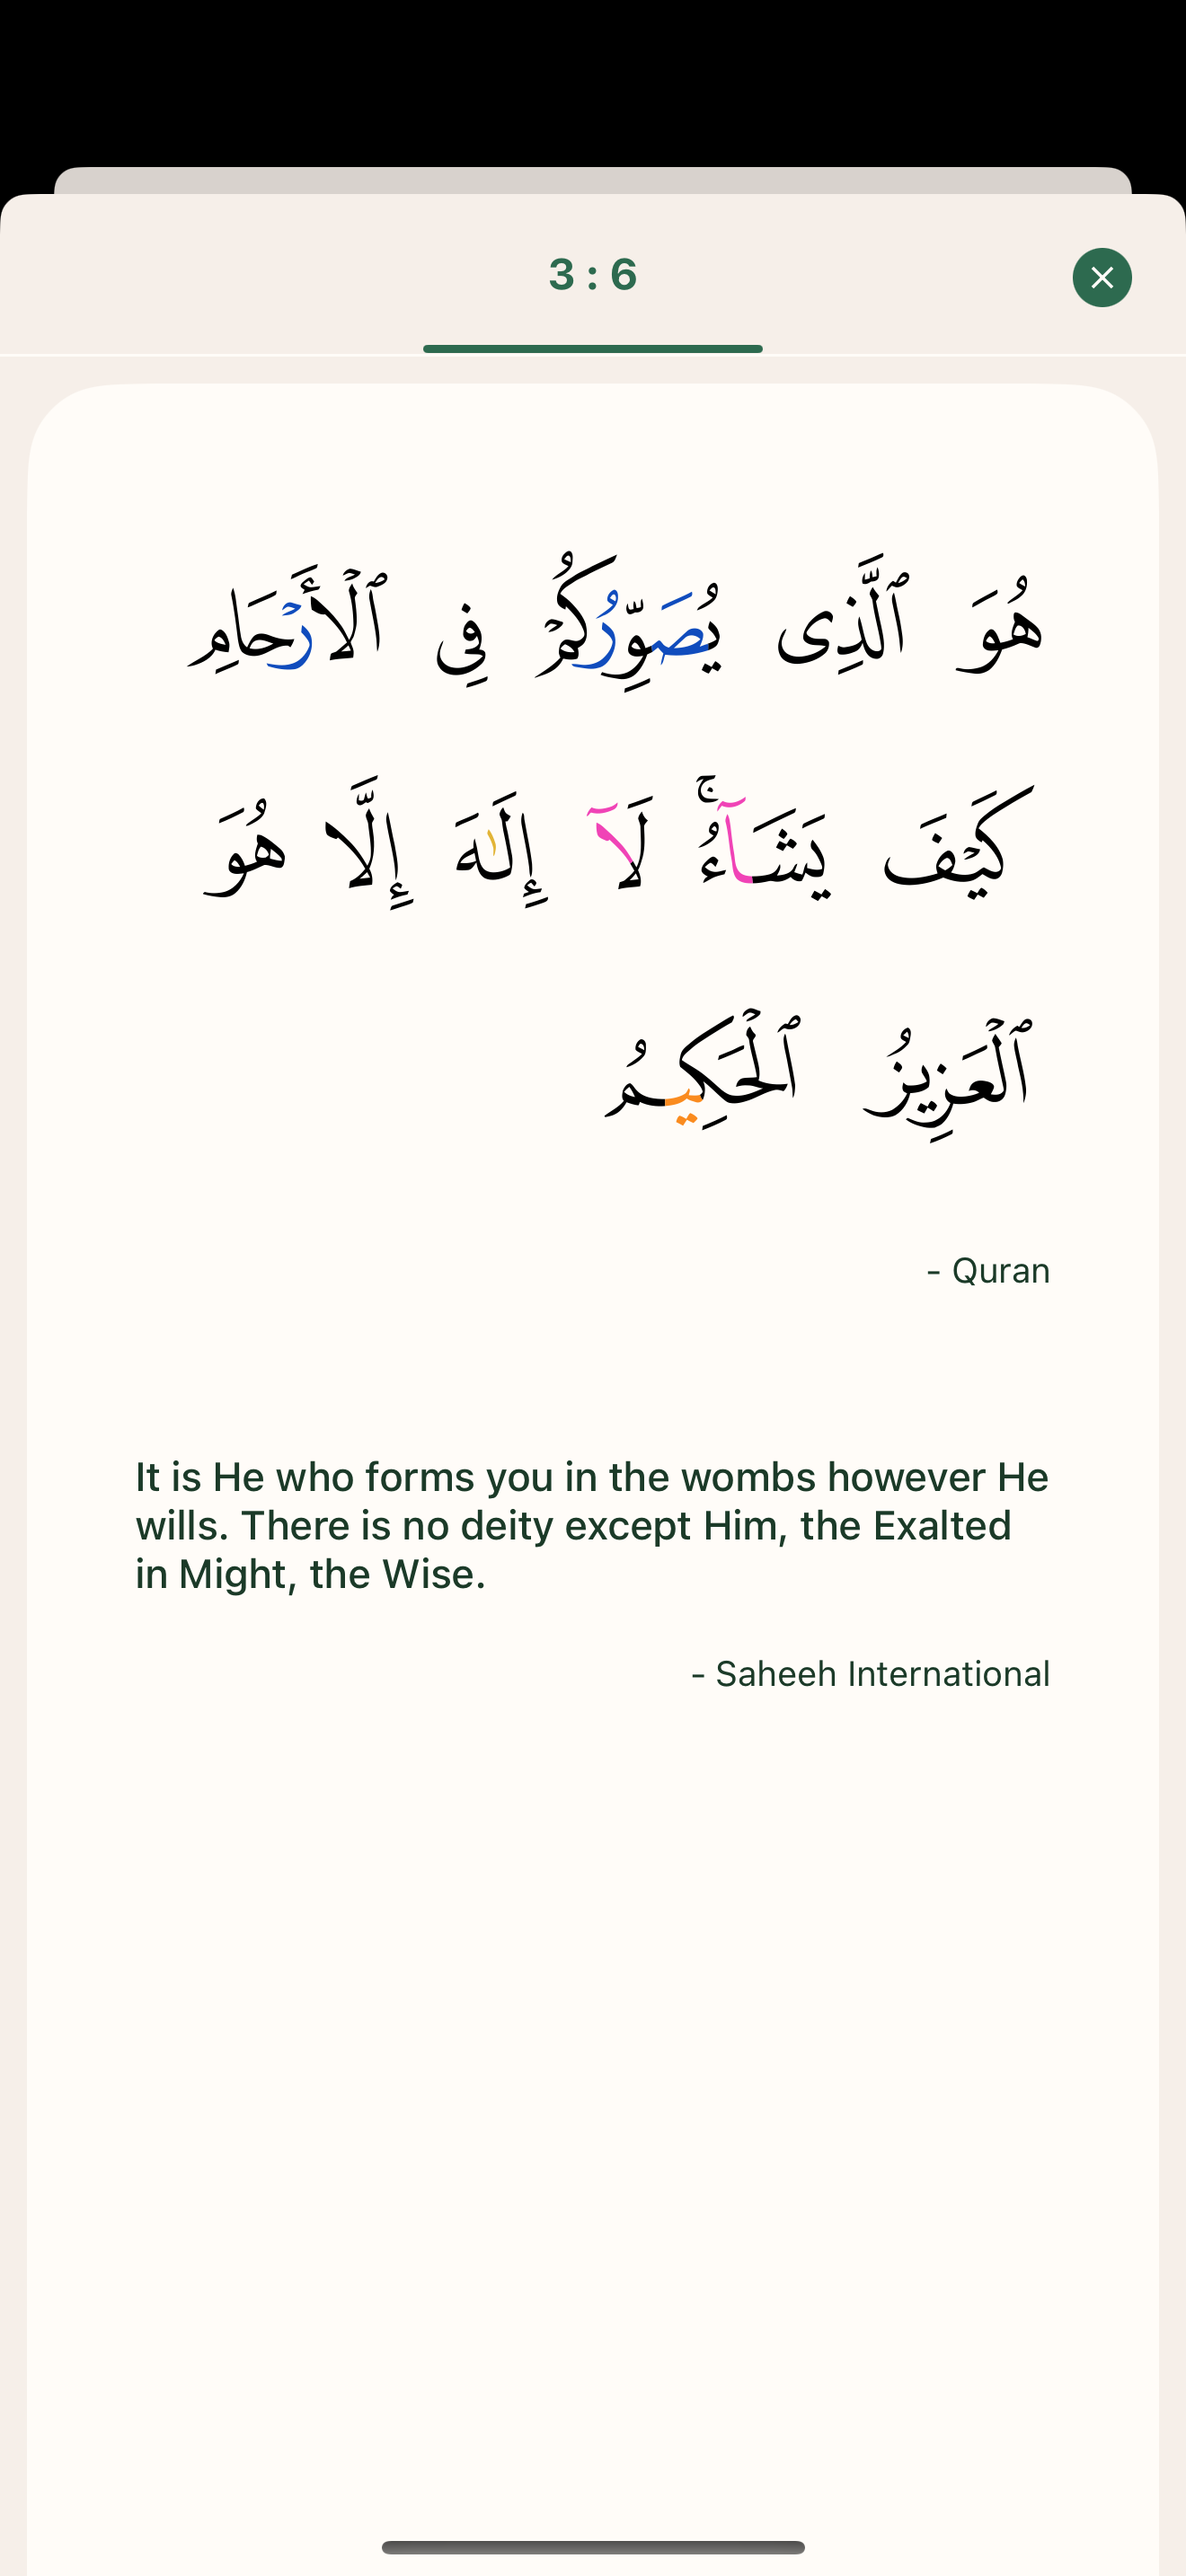 3 : 6
هُوَ ٱلَّذِى يُصَوِّرُكُمْ فِى ٱلْأَرْحَامِ
كَيْفَ يَشَآءُ ۚ لَآ إِلَـٰهَ إِلَّا هُوَ
ٱلْعَزِيزُ ٱلْحَكِيمُ
- Quran
It is He who forms you in the wombs however He
wills. There is no deity except Him, the Exalted
in Might, the Wise.
- Saheeh International